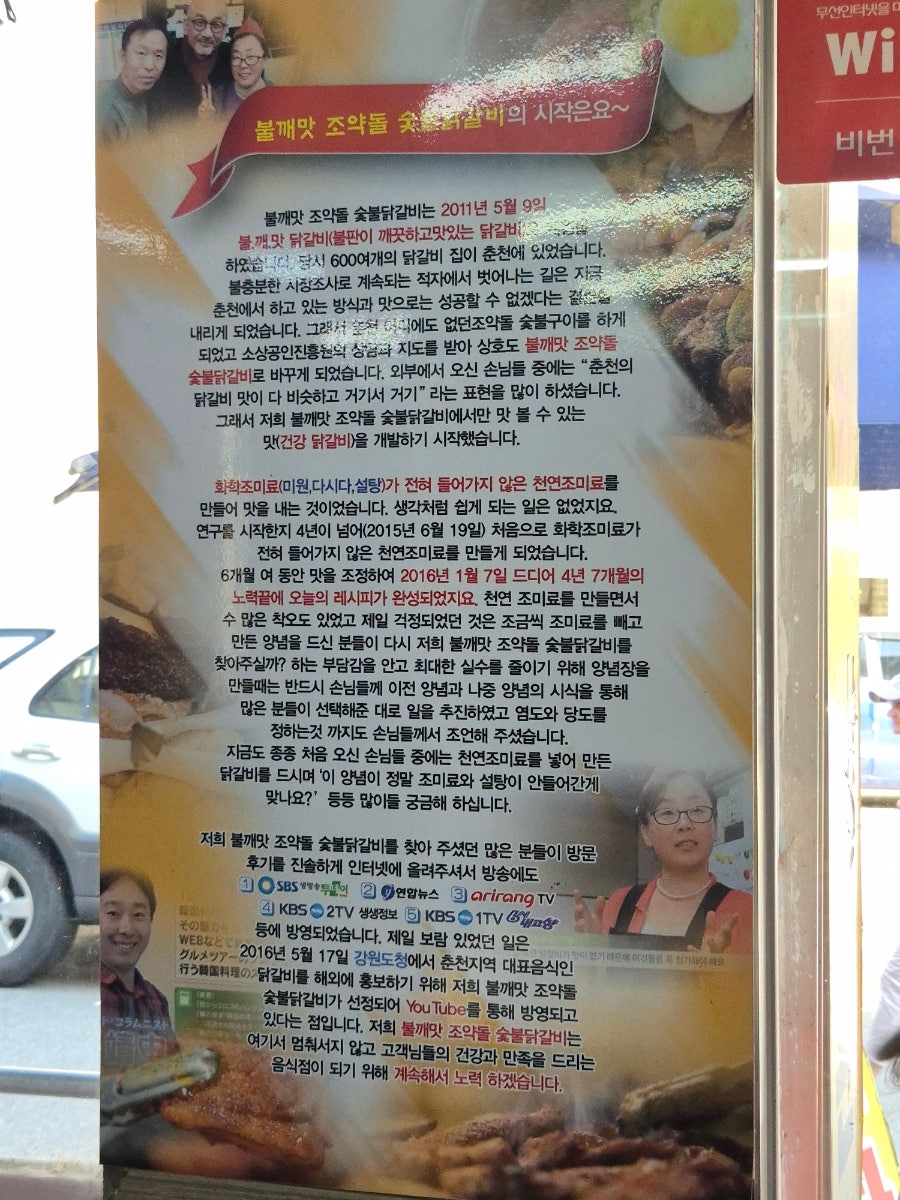 불깨맛 조약돌 숯불닭갈비의 시작은요~
불깨맛 조약돌 숯불닭갈비는 2011년 5월 9일
불.깨.맛 닭갈비(불판이 깨끗하고맛있는 닭갈비)
하였습니다. 당시 600여개의 닭갈비 집이 춘천에 있었습니다.
불충분한 시장조사로 계속되는 적자에서 벗어나는 길은 지금
춘천에서 하고 있는 방식과 맛으로는 성공할 수 없겠다는 결론을
내리게 되었습니다. 그래서 춘천 어디에도 없던조약돌 숯불구이를 하게
되었고 소상공인진흥원의 상담과 지도를 받아 상호도 불깨맛 조약돌
숯불닭갈비로 바꾸게 되었습니다. 외부에서 오신 손님들 중에는 “춘천의
닭갈비 맛이 다 비슷하고 거기서 거기” 라는 표현을 많이 하셨습니다.
그래서 저희 불깨맛 조약돌 숯불닭갈비에서만 맛 볼 수 있는
맛(건강 닭갈비)을 개발하기 시작했습니다.
화학조미료(미원,다시다,설탕)가 전혀 들어가지 않은 천연조미료를
만들어 맛을 내는 것이었습니다. 생각처럼 쉽게 되는 일은 없었지요.
연구를 시작한지 4년이 넘어(2015년 6월 19일) 처음으로 화학조미료가
전혀 들어가지 않은 천연조미료를 만들게 되었습니다.
6개월 여 동안 맛을 조정하여 2016년 1월 7일 드디어 4년 7개월의
노력끝에 오늘의 레시피가 완성되었지요. 천연 조미료를 만들면서
수 많은 착오도 있었고 제일 걱정되었던 것은 조금씩 조미료를 빼고
만든 양념을 드신 분들이 다시 저희 불깨맛 조약돌 숯불닭갈비를
찾아주실까? 하는 부담감을 안고 최대한 실수를 줄이기 위해 양념장을
만들때는 반드시 손님들께 이전 양념과 나중 양념의 시식을 통해
많은 분들이 선택해준 대로 일을 추진하였고 염도와 당도를
정하는것 까지도 손님들께서 조언해 주셨습니다.
지금도 종종 처음 오신 손님들 중에는 천연조미료를 넣어 만든
닭갈비를 드시며 ‘이 양념이 정말 조미료와 설탕이 안들어간게
맞나요?’ 등등 많이들 궁금해 하십니다.
저희 불깨맛 조약돌 숯불닭갈비를 찾아 주셨던 많은 분들이 방문
후기를 진솔하게 인터넷에 올려주셔서 방송에도
1 SBS 생방송 투데이 2 연합뉴스 3 arirang TV
4 KBS 2TV 생생정보 5 KBS 1TV 6시 내고향
등에 방영되었습니다. 제일 보람 있었던 일은
2016년 5월 17일 강원도청에서 춘천지역 대표음식인
닭갈비를 해외에 홍보하기 위해 저희 불깨맛 조약돌
숯불닭갈비가 선정되어 YouTube를 통해 방영되고
있다는 점입니다. 저희 불깨맛 조약돌 숯불닭갈비는
여기서 멈춰서지 않고 고객님들의 건강과 만족을 드리는
음식점이 되기 위해 계속해서 노력 하겠습니다.
その魅力
WEBなどで
グルメツアー
行う韓国料理の
コラムニスト
무선인터넷을
Wi
비번